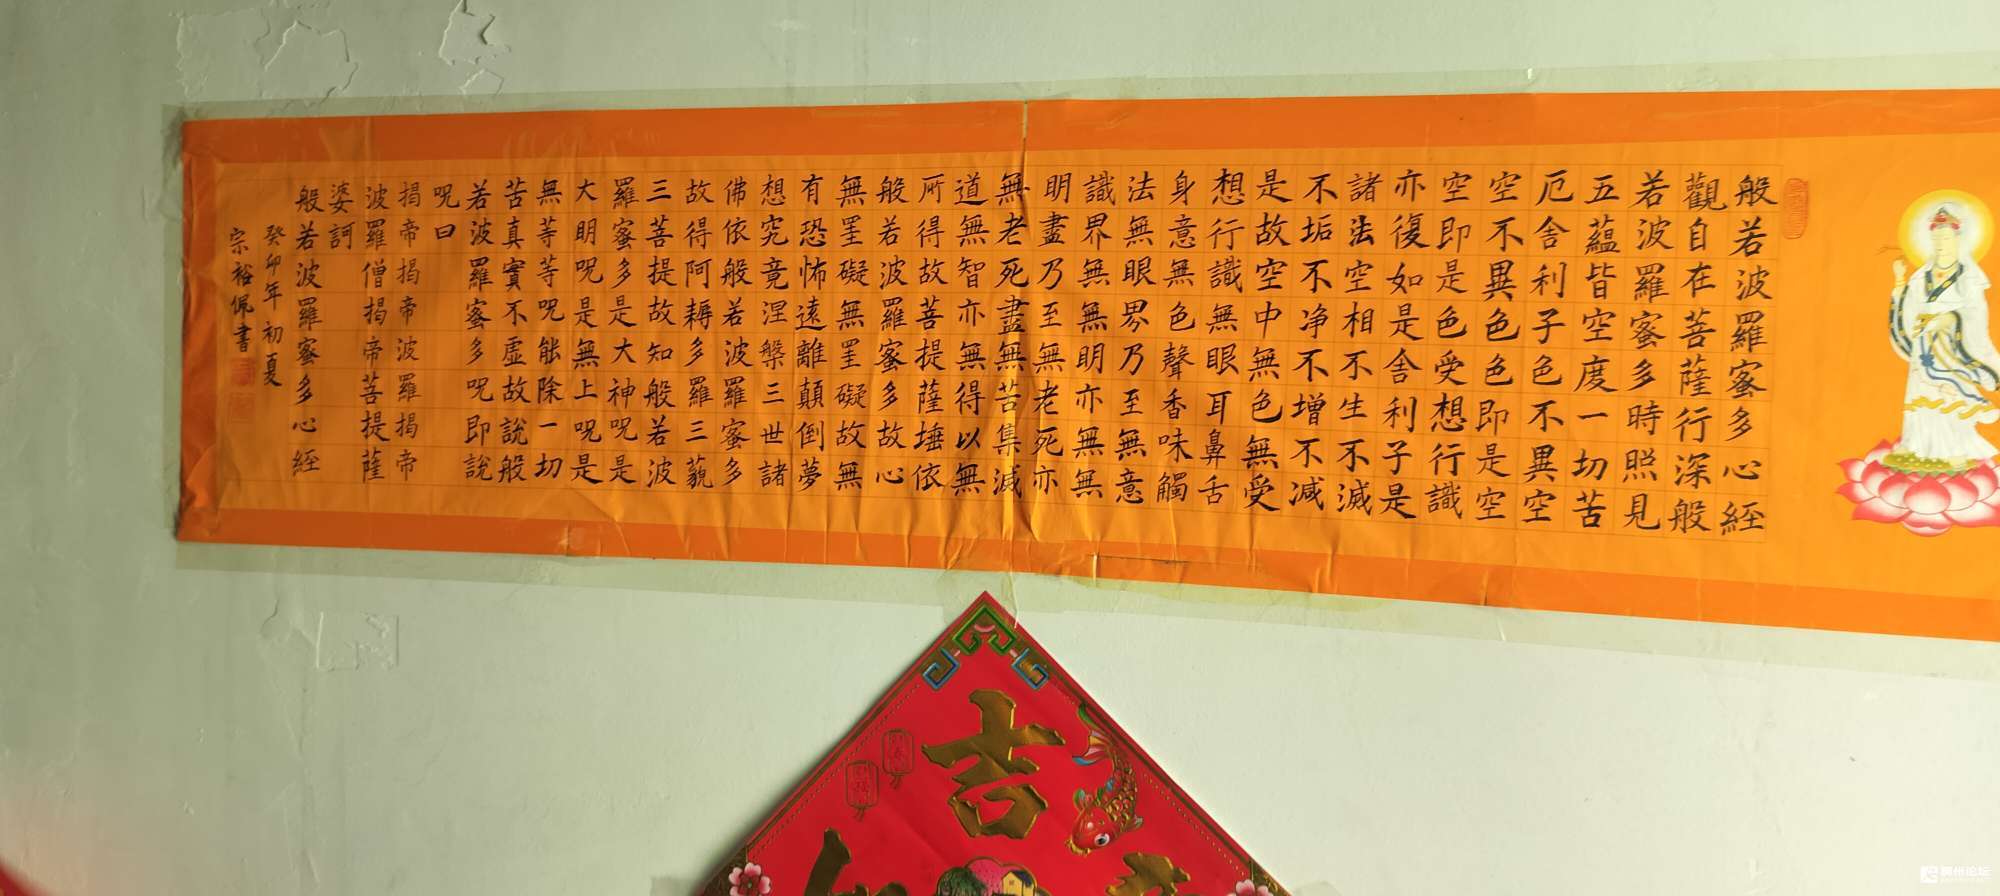 般若波羅蜜多心經
觀自在菩薩行深般
若波羅蜜多時照見
五蘊皆空度一切苦
厄舍利子色不異空
空不異色色即是空
空即是色受想行識
亦復如是舍利子是
諸法空相不生不滅
不垢不净不增不减
是故空中無色無受
想行識無眼耳鼻舌
身意無色聲香味觸
法無眼界乃至無意
識界無無明亦無無
明盡乃至無老死亦
無老死盡無苦集滅
道無智亦無得以無
所得故菩提薩埵依
般若波羅蜜多故心
無罣礙無罣礙故無
有恐怖遠離顛倒夢
想究竟涅槃三世諸
佛依般若波羅蜜多
故得阿耨多羅三藐
三菩提故知般若波
羅蜜多是大神呪是
大明呪是無上呪是
無等等呪能除一切
苦真實不虛故說般
若波羅蜜多呪即說
呪曰
揭帝揭帝波羅揭帝
波羅僧揭帝菩提薩
婆訶
般若波羅蜜多心經
癸卯年初夏
宗裕佩書
吉
论坛